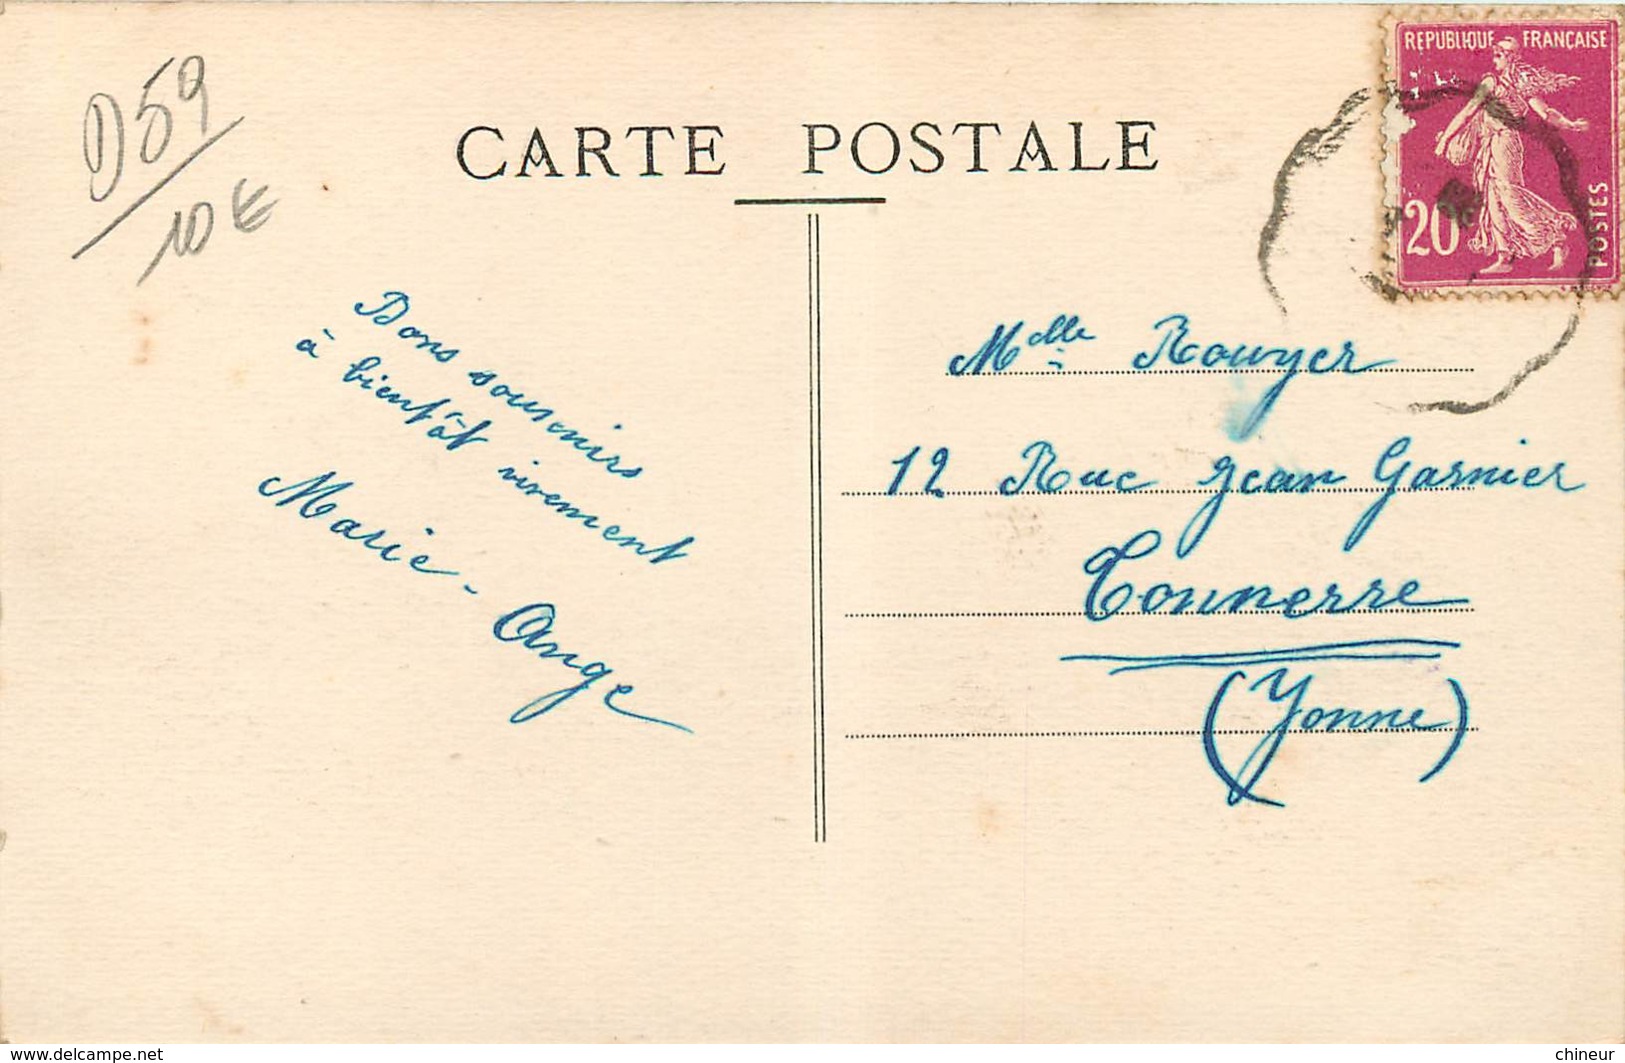 D59
10€
CARTE POSTALE
REPUBLIQUE FRANÇAISE
20
POSTES
Bons souvenirs
à bientôt vivement
Marie-Ange
Mlle Rouyer
12 Rue Jean Garnier
Tonnerre
(Yonne)
www.delcampe.net
chineur